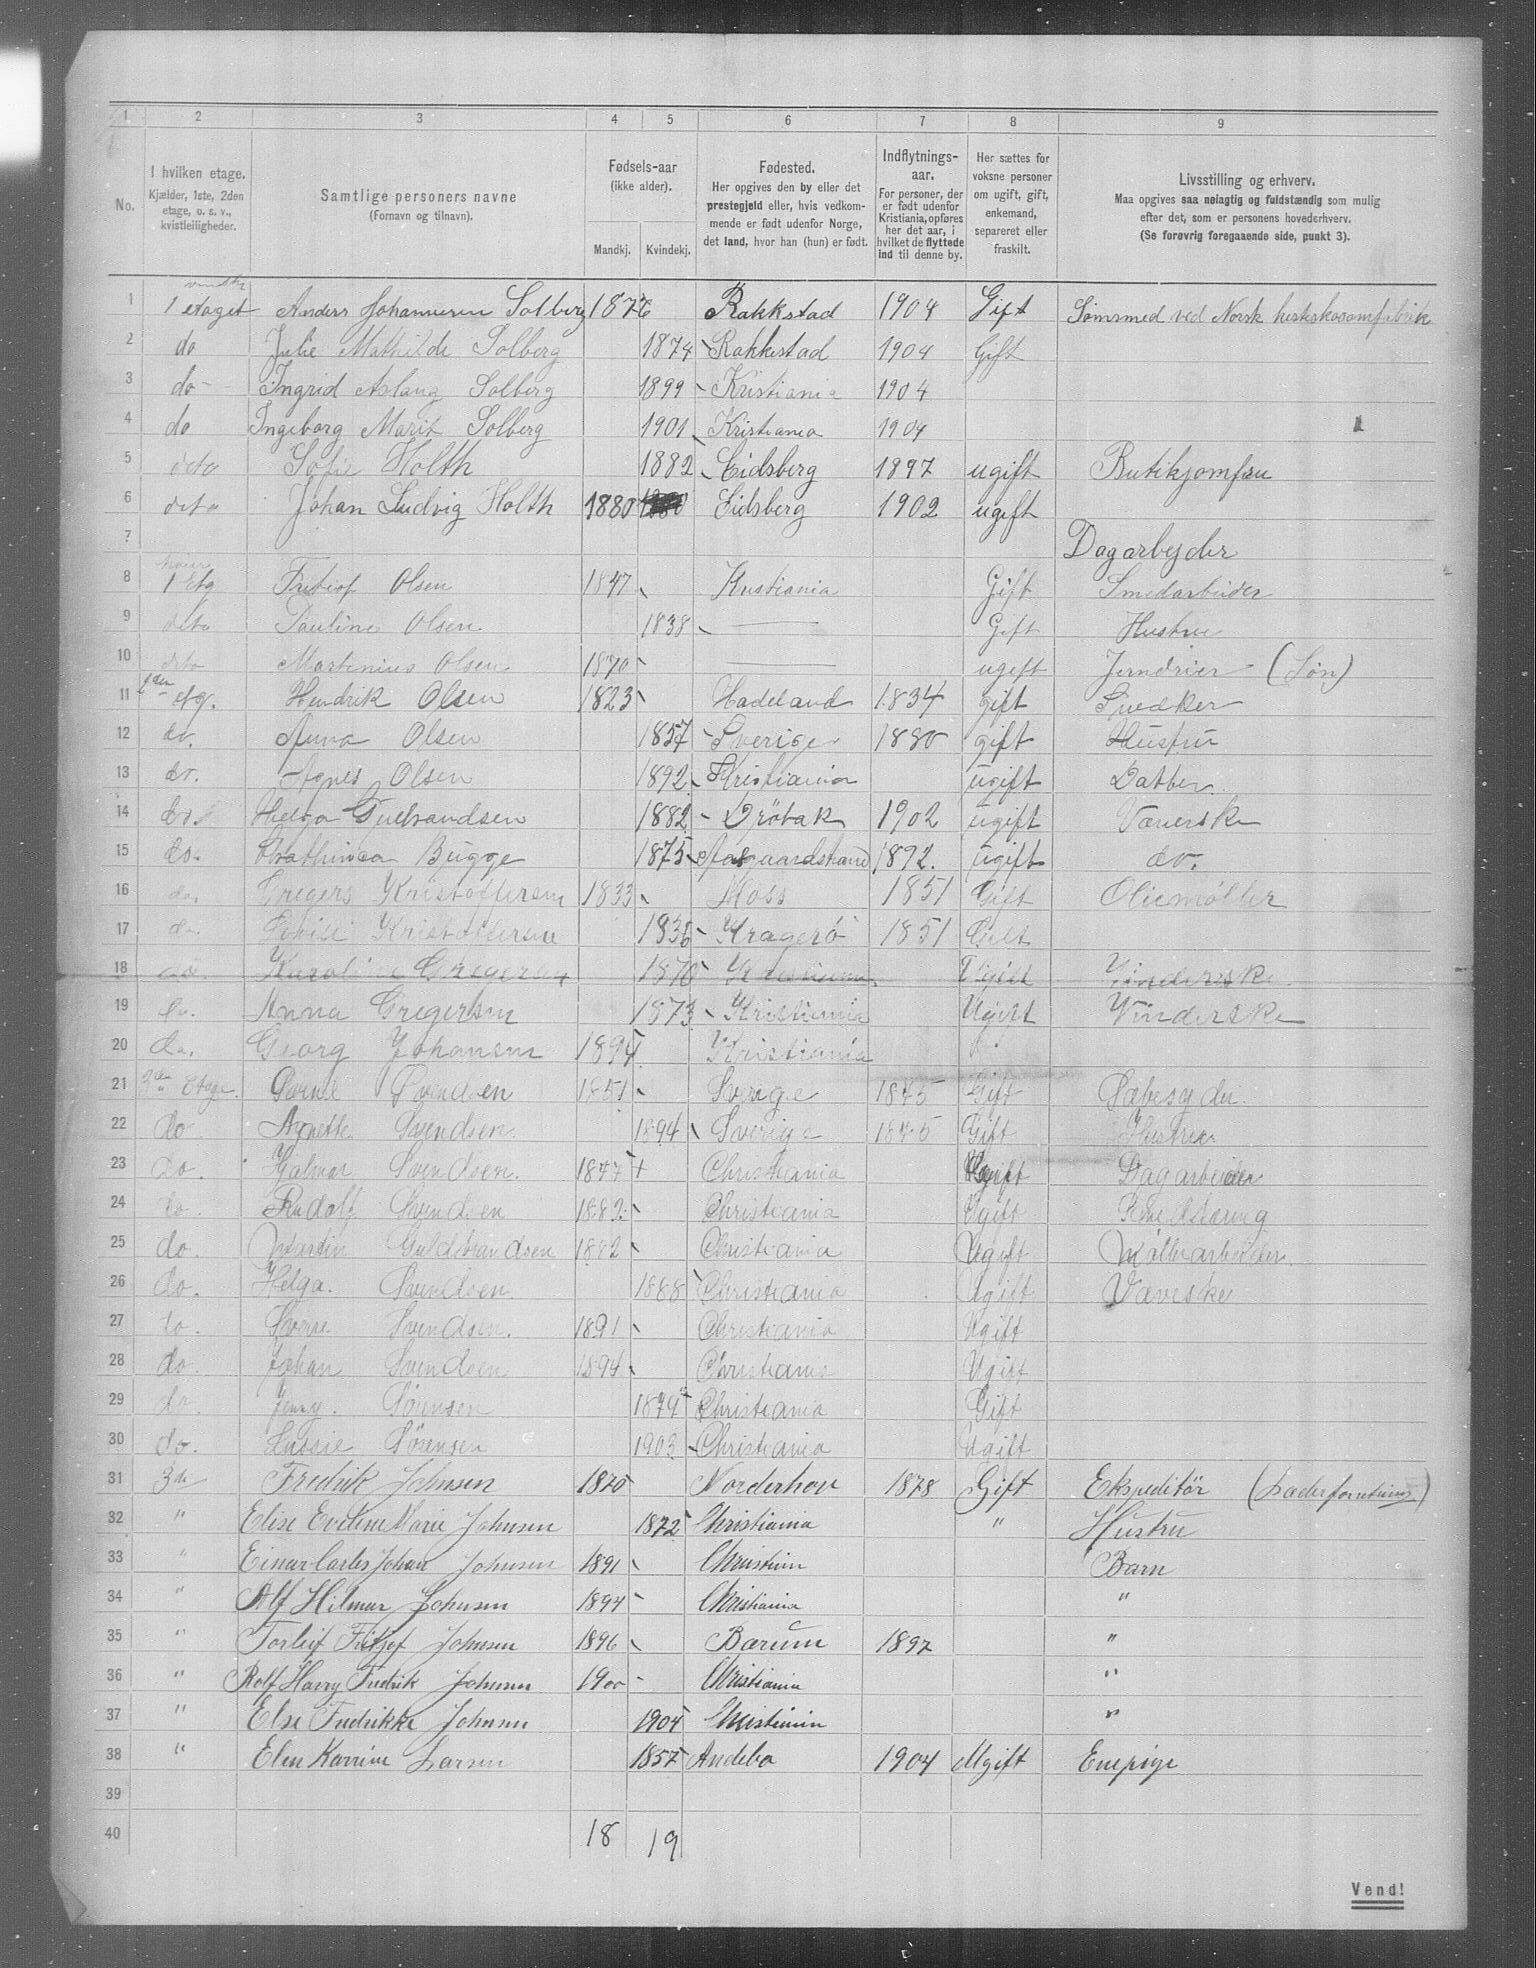 1 2 3 4 5 6 7 8 9
No.
I hvilken etage.
Kjælder, 1ste, 2den
etage, o. s. v.,
kvistleiligheder.
Samtlige personers navne
(Fornavn og tilnavn).
Fødsels-aar
(ikke alder).
Mandkj. Kvindekj.
Fødested.
Her opgives den by eller det
prestegjeld eller, hvis vedkom-
mende er født udenfor Norge,
det land, hvor han (hun) er født.
Indflytnings-
aar.
For personer, der
er født udenfor
Kristiania, opføres
her det aar, i
hvilket de flyttede
ind til denne by.
Her sættes for
voksne personer
om ugift, gift,
enkemand,
separeret eller
fraskilt.
Livsstilling og erhverv.
Maa opgives saa nøiagtig og fuldstændig som mulig
efter det, som er personens hovederhverv.
(Se forøvrig foregaaende side, punkt 3).
1 1 etaget Anders Johannesen Solberg 1876 Rakkstad 1904 Gift Sømsmed ved Norsk hesteskosømfabrik
2 do Julie Mathilde Solberg 1874 Rakkestad 1904 Gift
3 do Ingrid Aslaug Solberg 1899 Kristiania 1904
4 do Ingeborg Marit Solberg 1901 Kristiania 1904
5 deto Sofie Holth 1882 Eidsberg 1897 ugift Butikjomfru
6 deto Johan Ludvig Holth 1880 Eidsberg 1902 ugift
7 Dagarbejder
8 1 Etg Fritiof Olsen 1847 Kristiania Gift Smedarbeider
9 deto Pauline Olsen 1838 — Gift Hustru
10 deto Martinius Olsen 1870 — ugift Jerndreier (Søn)
11 etg. Hendrik Olsen 1823 Hadeland 1834 gift Snedker
12 do. Anna Olsen 1857 Sverige 1880 gift Hustru
13 do. Agnes Olsen 1892 Kristiania ugift Datter
14 do. Helga Gulbrandsen 1882 Drøbak 1902 ugift Væverske
15 do. Mathinea Bugge 1875 Aasgaardstrand 1892. ugift do.
16 do. Gregers Kristoffersen 1833 Moss 1851 Gift Oliemøller
17 do. Lovise Kristoffersen 1836 Kragerø 1851 Gift
18 do. Karoline Gregersen 1870 Kristiania Ugift Vinderske
19 do. Anna Gregersen 1873 Kristiania Ugift Vinderske
20 do. Georg Johansen 1894 Kristiania
21 Etage. Svendsen 1851 Sverige 1875 Gift Sæbesyder
22 do. Agnette Svendsen 1894 Sverige 1875 Gift Hustru
23 do. Hjalmar Svendsen. 1877 + Christiania Ugift Dagarbeider
24 do. Rudolf Svendsen 1882 Christiania Ugift
25 do. Martin Guldbrandsen 1882 Christiania Ugift Møllearbeider.
26 do. Helga. Svendsen 1888 Christiania Ugift Væverske
27 do. Sverre Svendsen. 1891 Christiania Ugift
28 do. Johan Svendsen 1894 Christiania Ugift
29 do. Jenny. Sørensen 1879 Christiania Gift
30 do. Lussie Sørensen 1903 Christiania Ugift
31 3de Fredrik Johnsen 1870 Norderhov 1878 Gift Ekspeditør (Læderforretning)
32 " Elise Eveline Marie Johnsen 1872 Christiania " Hustru
33 " Einar Carles Johan Johnsen 1891 Christiania Barn
34 " Alf Hilmar Johnsen 1894 Christiania "
35 " Torleif Fritjof Johnsen 1896 Bærum 1897 "
36 " Rolf Harry Fredrik Johnsen 1900 Christiania "
37 " Else Fredrikke Johnsen 1904 Christiania "
38 " Elen Karrine Larsen 1857 Andebo 1904 Ugift Enepige
39
40 18 19
Vend!